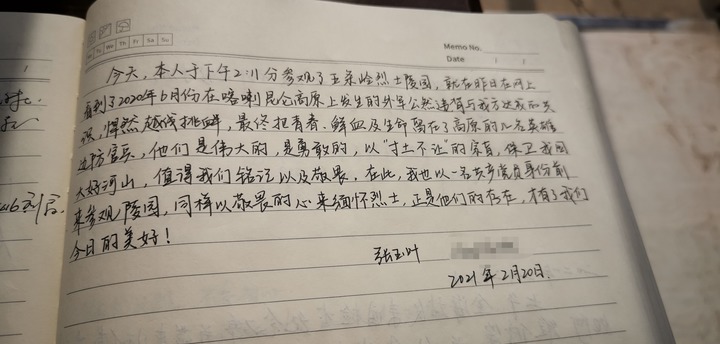 Memo No.
Mo Tu We Th Fr Sa Su
Date / /
今天,本人于下午2:11分参观了玉泉岭烈士陵园,就在昨日在网上
看到了2020年6月份在喀喇昆仑高原上发生的外军公然违背与我方达成的共
识,悍然越线挑衅,最终把青春、鲜血及生命留在了高原的几名英雄
边防官兵,他们是伟大的,是勇敢的,以“寸土不让”的家宣,保卫我国
大好河山,值得我们铭记以及敬畏.在此,我也以一名共产党员身份前
来参观陵园,同样以敬畏的心来缅怀烈士,正是他们的存在,才有了我们
今日的美好!
张玉叶
2021年2月20日.